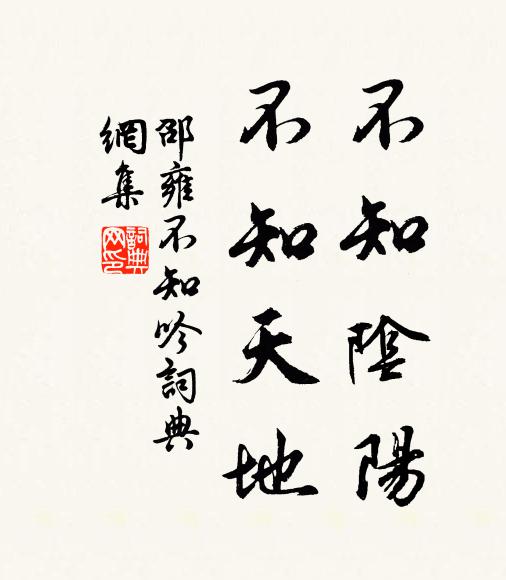 不知陰陽
不知天地
邵雍不知吟詞典
網集
詞典
网印